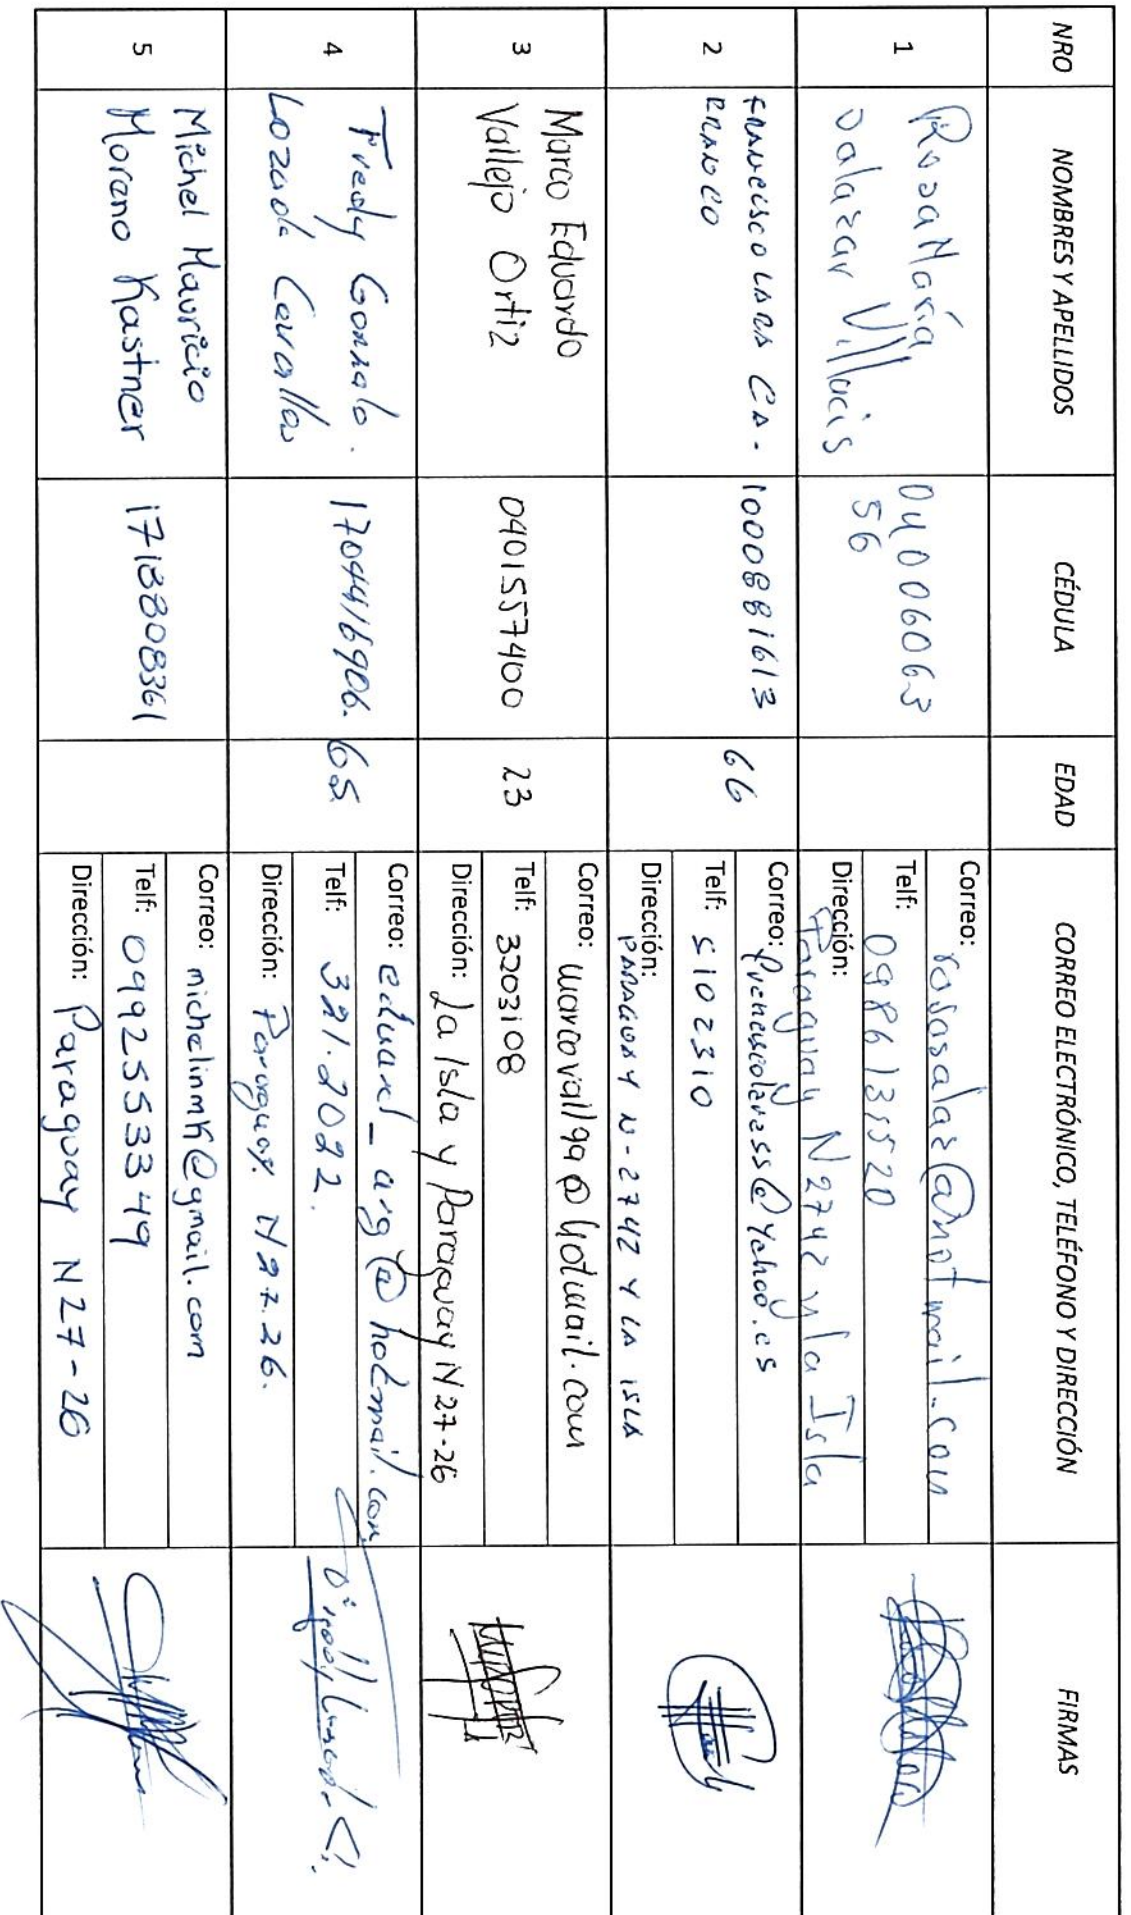 NRO NOMBRES Y APELLIDOS CÉDULA EDAD CORREO ELECTRÓNICO, TELÉFONO Y DIRECCIÓN FIRMAS
1
Rosa María
Salazar Villacis
0400606063
56
Correo: rosasalaz@hotmail.com
Telf: 0986135520
Dirección: Paraguay N2742 y la Isla
2
FRANCISCO LARA CA-
RRANCO
1000881613
66
Correo:
Telf: 5102310
Dirección: PARAGUAY N-2742 Y LA ISLA
3
Marco Eduardo
Vallejo Ortiz
0401557400
23
Correo: marcovall99@hotmail.com
Telf: 3203108
Dirección: La Isla y Paraguay N27-26
4
Fredy Gonzalo.
Lozada Cevallos
1704416906.
65
Correo: eduard_arg@hotmail.com
Telf: 321.2022.
Dirección: Paraguay. N27.26.
5
Michel Mauricio
Moreno Kastner
1718808361
Correo: michelinmk@gmail.com
Telf: 0992553349
Dirección: Paraguay N27-26